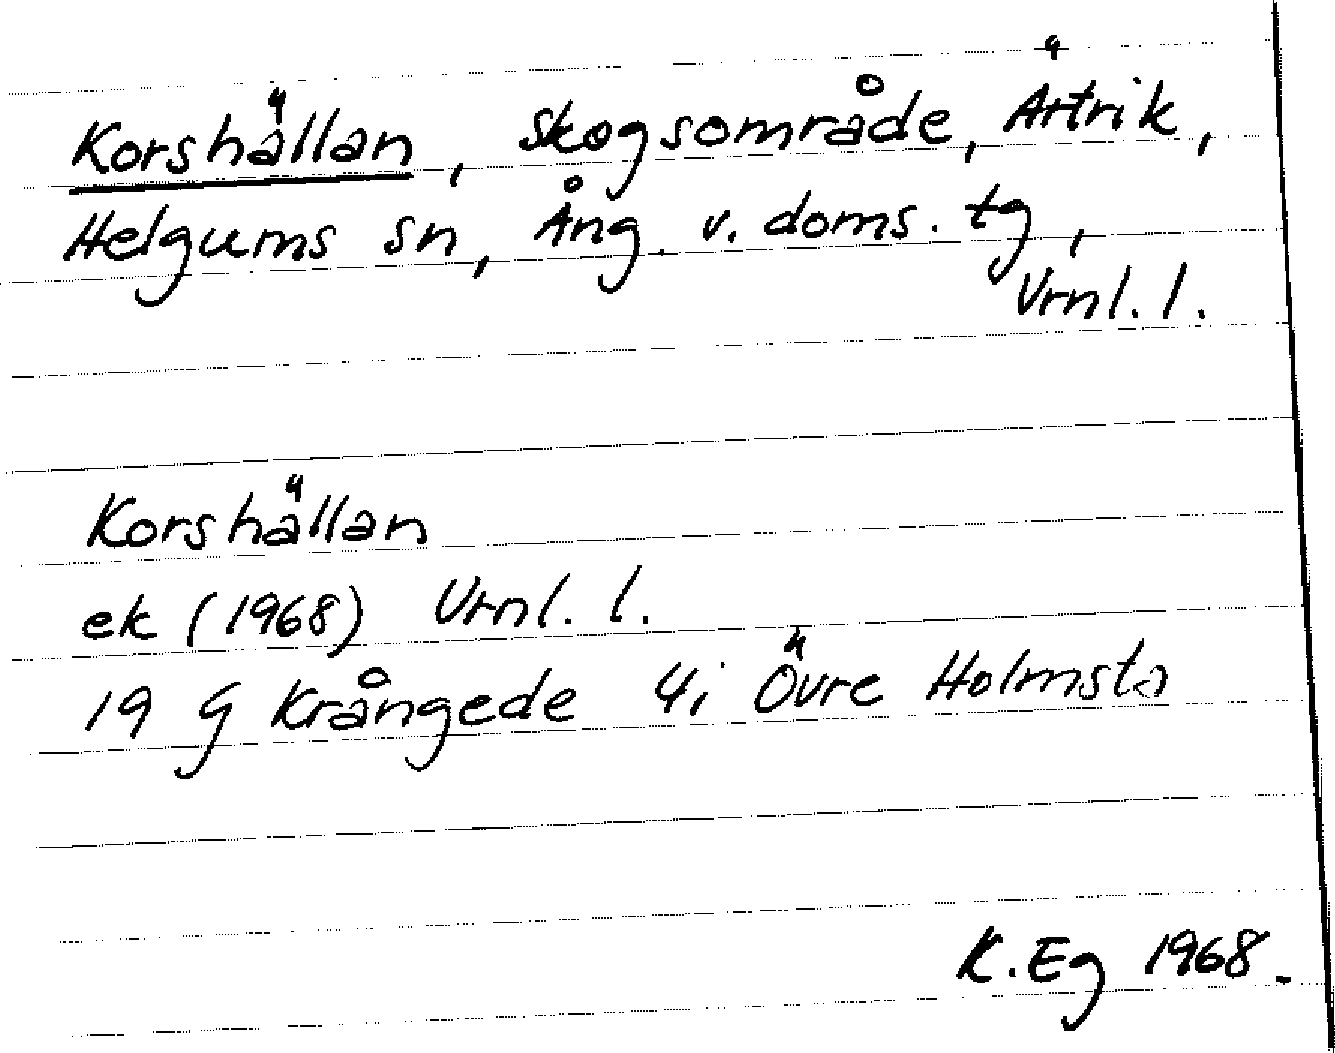 Korshällan, skogsområde, Ärtrik,
Helgums sn, Ång. v. doms. tg,
Vrnl. l.
Korshällan
ek (1968) Vrnl. l.
19 G Krångede 4i Övre Holmsta
K. Eg 1968.